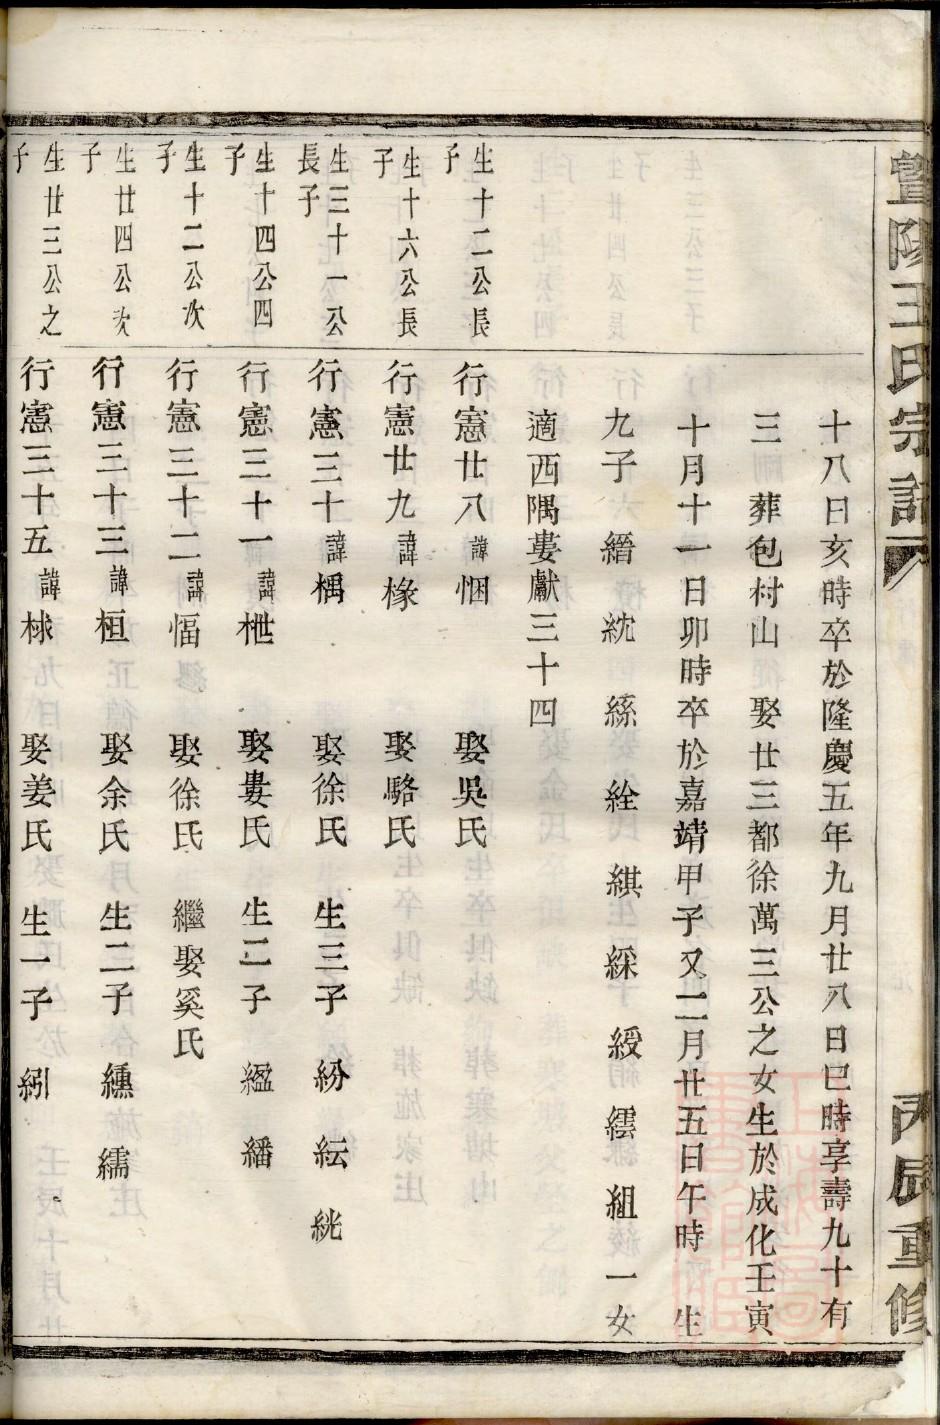 暨陽王氏宗譜
丙辰重修
十八日亥時卒於隆慶五年九月廿八日巳時享壽九十有
三 葬包村山 娶廿三都徐萬三公之女生於成化壬寅
十月十一日卯時卒於嘉靖甲子又二月廿五日午時 生
九子 縉 紞 絲 絟 綨 綵 綬 繧 組 一女
適西隅婁獻三十四
生十二公長子
行憲廿八諱梱 娶吳氏
生十六公長子
行憲廿九諱椽 娶駱氏
生三十一公長子
行憲三十諱楀 娶徐氏 生三子 紛 紜 絖
生十四公四子
行憲三十一諱枻 娶婁氏 生二子 縕 繙
生十二公次子
行憲三十二諱楅 娶徐氏 繼娶奚氏
生廿四公次子
行憲三十三諱桓 娶余氏 生二子 纁 繻
生廿三公之子
行憲三十五諱梂 娶姜氏 生一子 紖